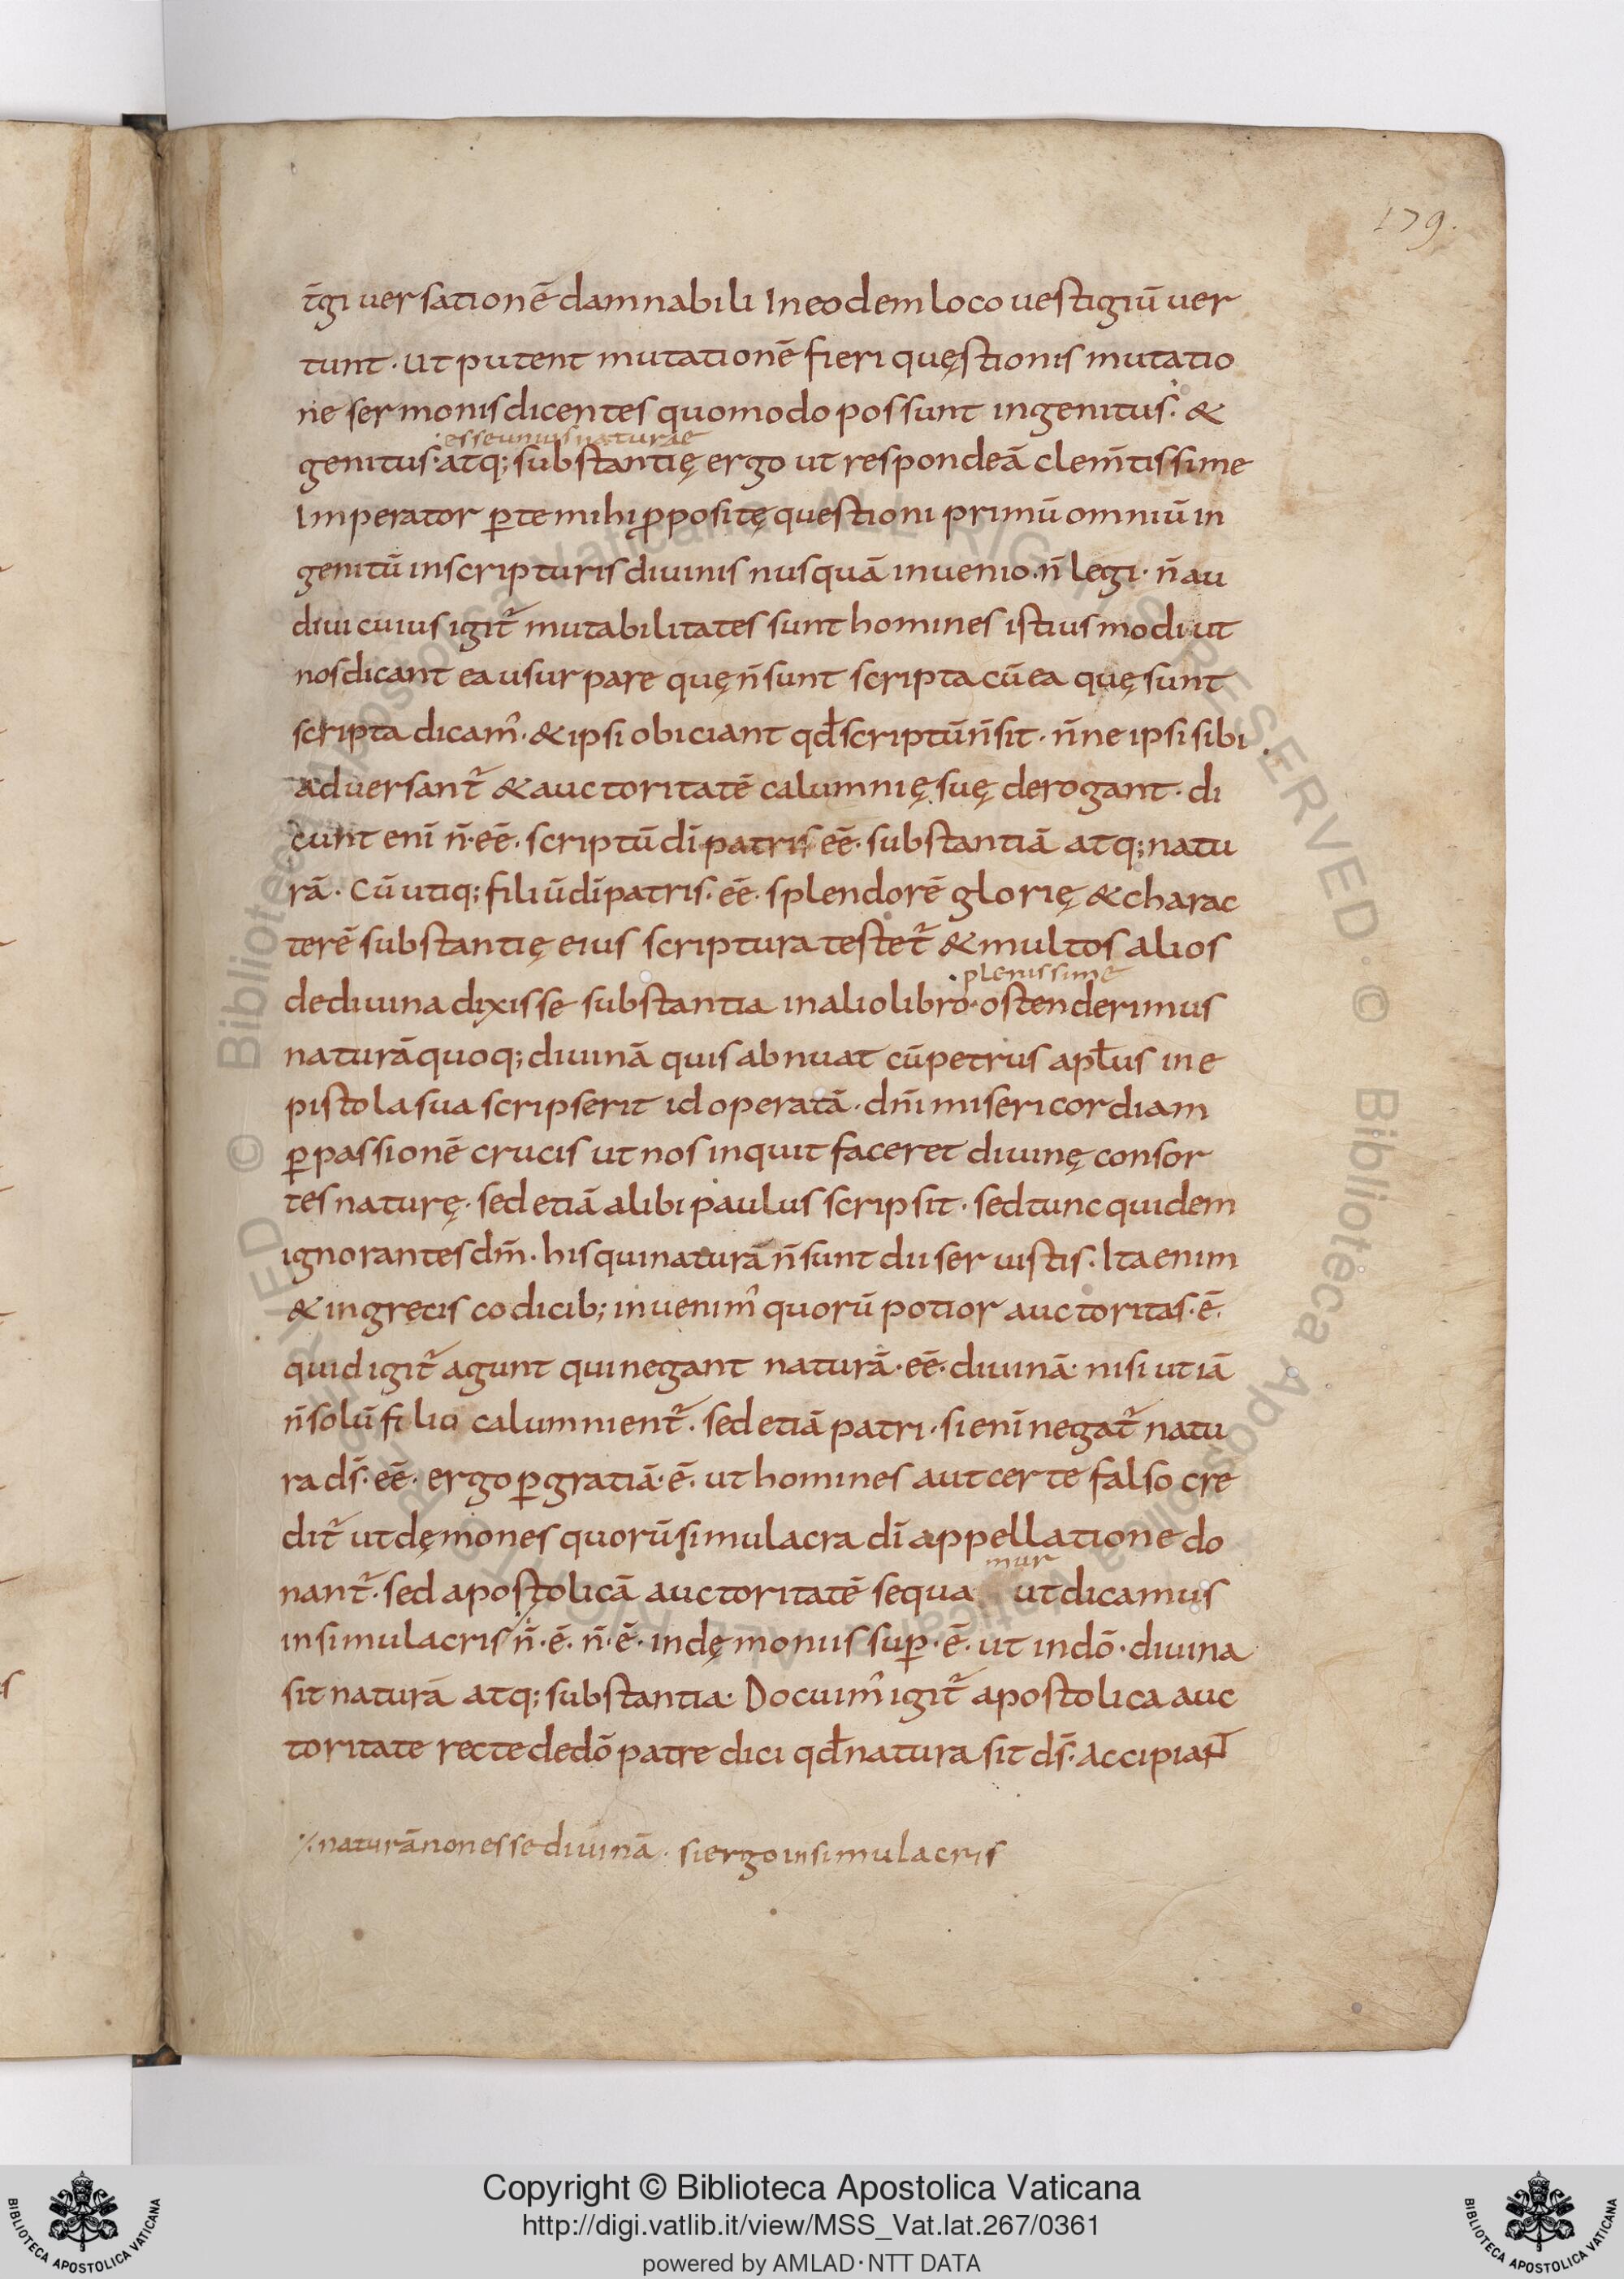 179.
t̄gi uersationē damnabili In eodem loco uestigiū uer
tunt · Ut putent mutationē fieri quęstionis mutatio
ne sermonis dicentes quomodo possunt ingenitus · &
·esse unius naturae
genitus · atq; substantię ergo ut respondeā clem̄tissime
Imperator p̱ te mihi ꝓpositę questioni primū omniū in
genitū in scripturis diuinis nusquā inuenio · n̄ legi · n̄ au
diui cuius igit᷑ mutabilitates sunt homines istius modi ut
nos dicant ea usurpare quę n̄ sunt scripta cū ea quę sunt
scripta dicam᷒ · & ipsi obiciant qđ scriptū n̄ sit · n̄ne ipsi sibi
aduersant᷑ & auctoritatē calumnię suę derogant · di
cunt enī n̄ · eē · scriptū dī patris eē · substantiā atq; natu
rā · Cū utiq; filiū dī patris · eē · splendorē glorię & charac
terē substantię eius scriptura testet᷑ & multos alios
· plenissime
de diuina dixisse substantia in alio libro · ostenderimus
naturā quoq; diuinā quis abnuat cū petrus apłus in e
pistola sua scripserit id operatā · dn̄i misericordiam
p̱ passionē crucis ut nos inquit faceret diuinę consor
tes naturę · sed etiā alibi paulus scripsit · sed tunc quidem
ignorantes dm̄ · his qui naturā n̄ sunt dii seruistis · Ita enim
& in gręcis codicib; inuenim᷒ quorū potior auctoritas · ē ·
quid igit᷑ agunt qui negant naturā · eē · diuinā · nisi ut iā
n̄ solū filii calumnient᷑ · sed etiā patri · si enī negat᷑ natu
ra ds̄ · eē · ergo p̱ gratiā · ē · ut homines aut certe falso cre
dit᷑ ut dęmones quorū simulacra dī appellatione do
mur
nant᷑ · sed apostolicā auctoritatē sequa ut dicamus
in simulacris n̄ · ē · n̄ · ē · in dęmoniis sup̱ · ē · ut in dō · diuina
sit naturā atq; substantia · Docuim᷒ igit᷑ apostolica auc
toritate recte de dō patre dici qđ natura sit ds̄ · accipiant
·/· naturā non esse diuinā · si ergo in simulacris
Copyright © Biblioteca Apostolica Vaticana
http://digi.vatlib.it/view/MSS_Vat.lat.267/0361
powered by AMLAD · NTT DATA
BIBLIOTECA APOSTOLICA VATICANA
BIBLIOTECA APOSTOLICA VATICANA